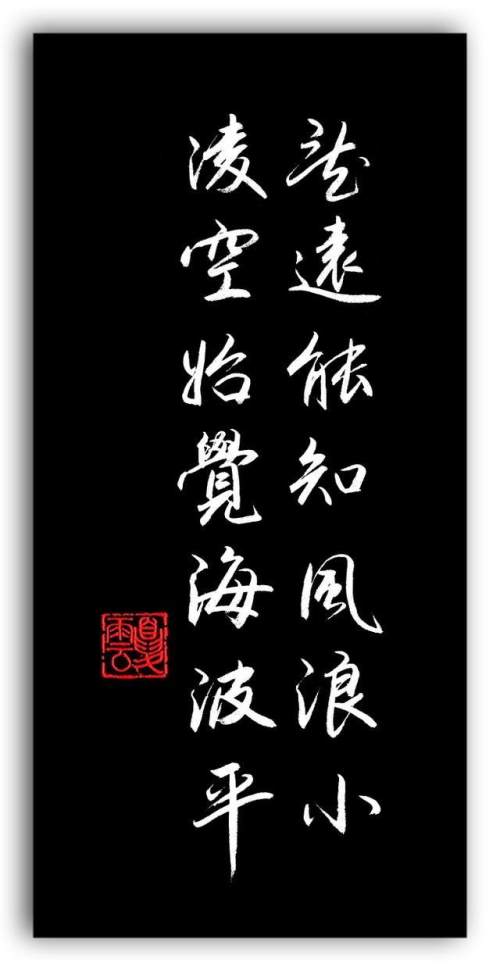 遠能知風浪小
淩空始覺海波平
夏雲